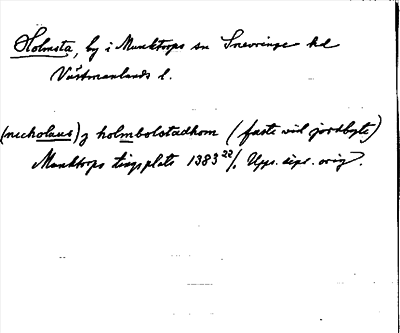 Holmsta, by i Munktorps sn Snevringe hd
Västmanlands l.
(nicholaus) j holmbolstadhom (faste vid jordbyte)
Munktorps tingsplats 1383 22/. Upps. dipl. orig.